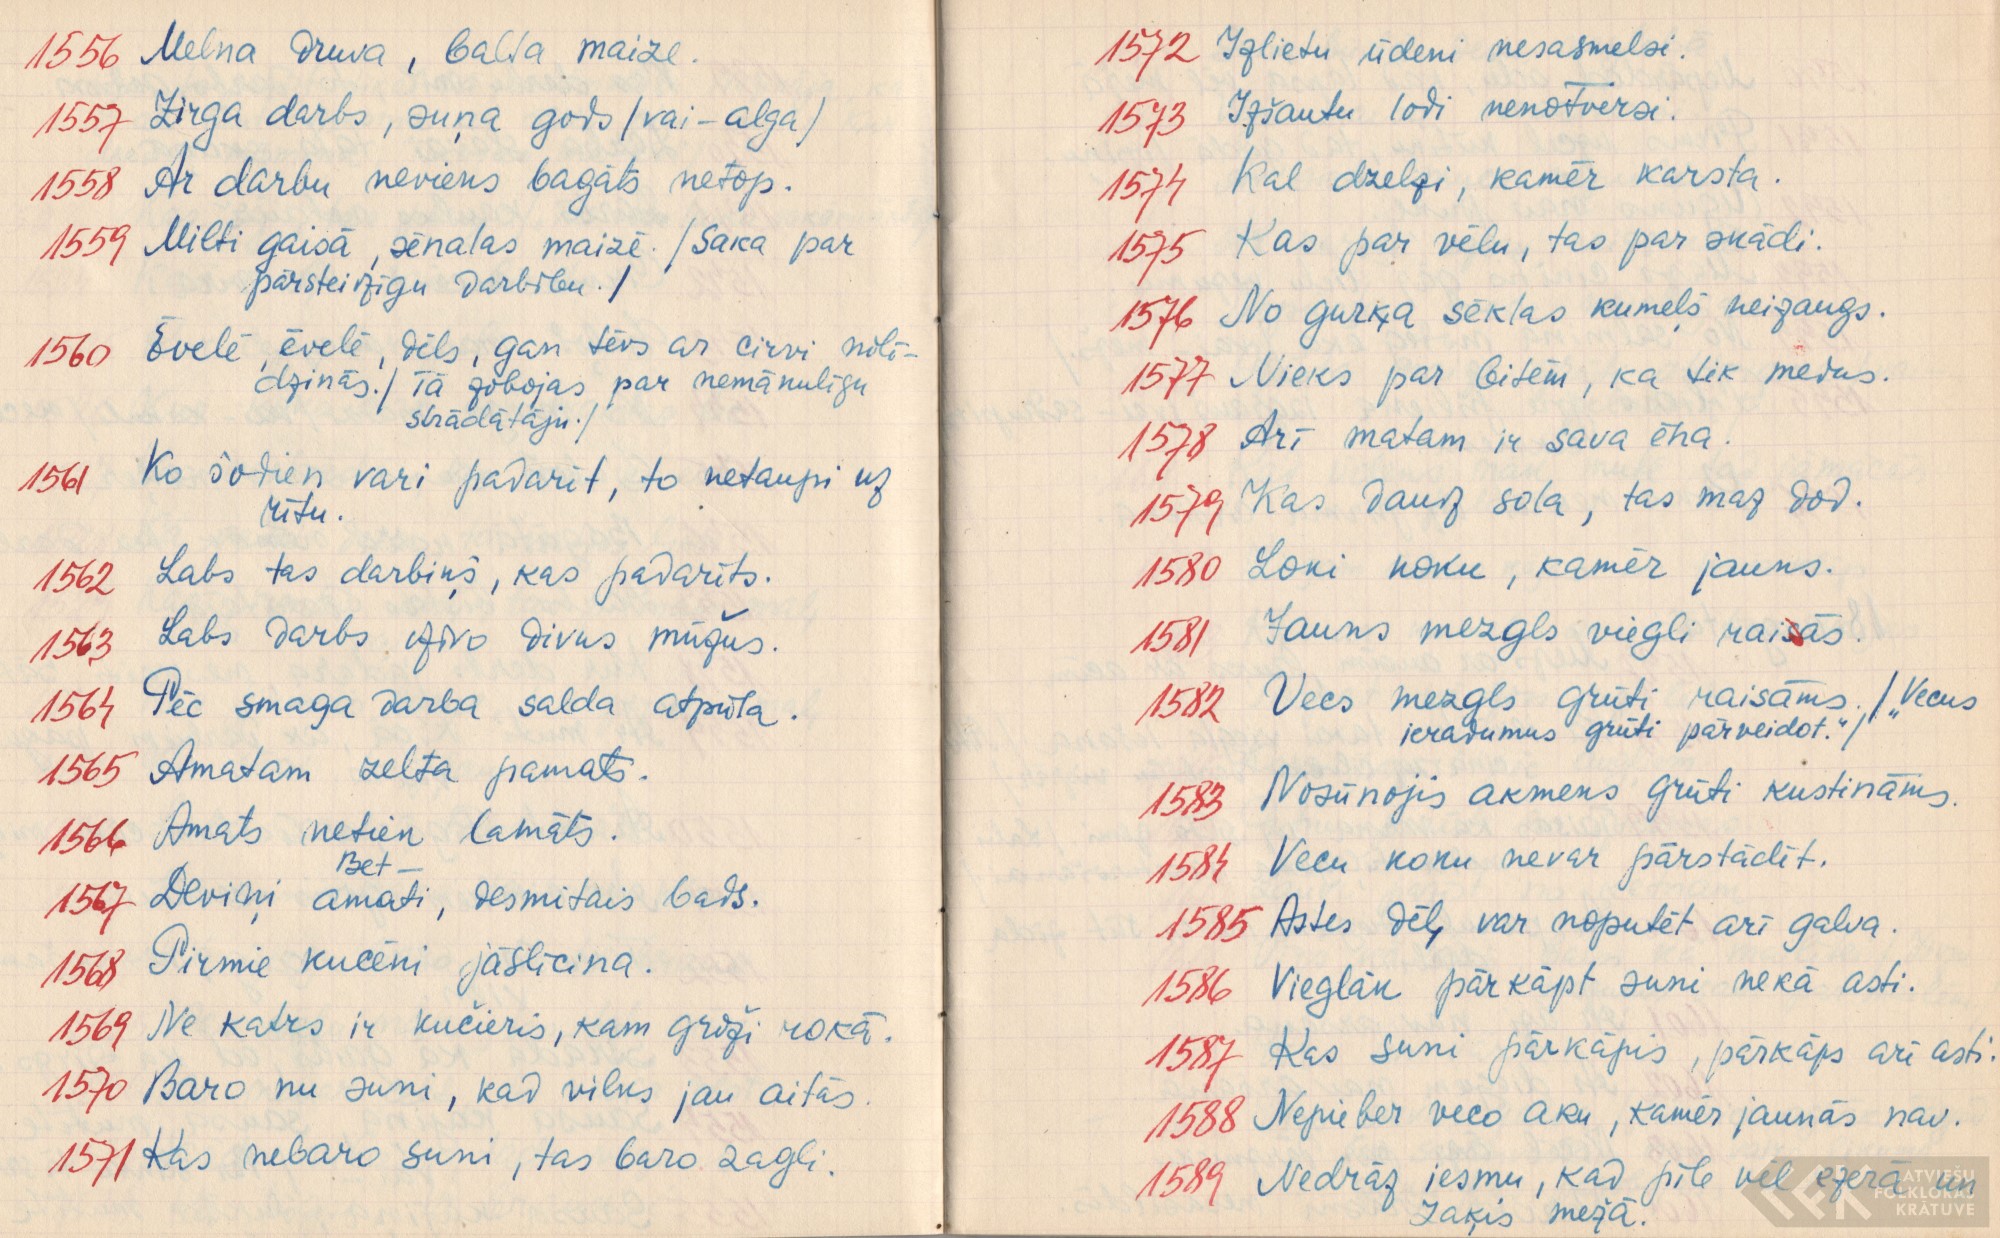 1556 Melna druva, balta maize.
1557 Zirga darbs, suņa gods /vai - alga/
1558 Ar darbu neviens bagāts netop.
1559 Milti gaisā, sēnalas maizē. /Saka par
pārsteidzīgu darbību./
1560 Ēvelē, ēvelē, dēls, gan tēvs ar cirvi nolī-
dzinās./ Tā zobojas par nemākulīgu
strādātāju./
1561 Ko šodien vari padarīt, to netaupi uz
rītu.
1562 Labs tas darbiņš, kas padarīts.
1563 Labs darbs dzīvo divus mūžus.
1564 Pēc smaga darba salda atpūta.
1565 Amatam zelta pamats.
1566 Amats netien lamāts.
Bet -
1567 Deviņi amati, desmitais bads.
1568 Pirmie kucēni jāslīcina.
1569 Ne katrs ir kučieris, kam groži rokā.
1570 Baro nu suni, kad vilks jau aitās.
1571 Kas nebaro suni, tas baro zagli.
1572 Izlietu ūdeni nesasmelsi.
1573 Izšautu lodi nenotversi.
1574 Kal dzelzi, kamēr karsta.
1575 Kas par vēlu, tas par skādi.
1576 No gurķa sēklas kumeļš neizaugs.
1577 Nieks par bitēm, ka tik medus.
1578 Arī matam ir sava ēna.
1579 Kas daudz sola, tas maz dod.
1580 Loki koku, kamēr jauns.
1581 Jauns mezgls viegli raisās.
1582 Vecs mezgls grūti raisāms./ „Vecus
ieradumus grūti pārveidot."/
1583 Nosūnojis akmens grūti kustināms.
1584 Vecu koku nevar pārstādīt.
1585 Astes dēļ var noputēt arī galva.
1586 Vieglāk pārkāpt suni nekā asti.
1587 Kas suni pārkāpis, pārkāps arī asti.
1588 Nepieber veco aku, kamēr jaunās nav.
1589 Nedrāz iesmu, kad pīle vēl ezerā un
zaķis mežā.
LATVIEŠU
FOLKLORAS
KRĀTUVE